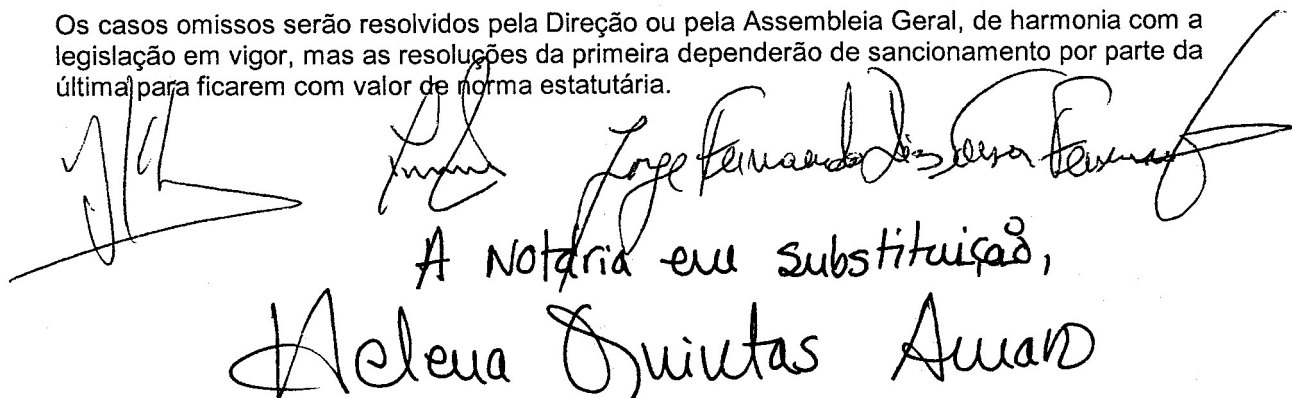 Os casos omissos serão resolvidos pela Direção ou pela Assembleia Geral, de harmonia com a
legislação em vigor, mas as resoluções da primeira dependerão de sancionamento por parte da
última para ficarem com valor de norma estatutária.
Jorge Fernando Dias
A Notária em substituição,
Helena Quintas Amaro